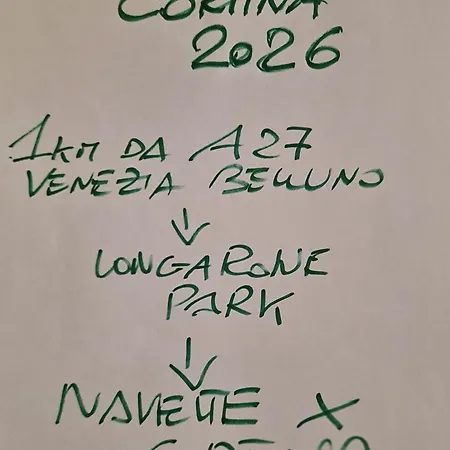 CORTINA
2026
1KM DA A27
VENEZIA BELLUNO
LONGARONE
PARK
NAVETTE X